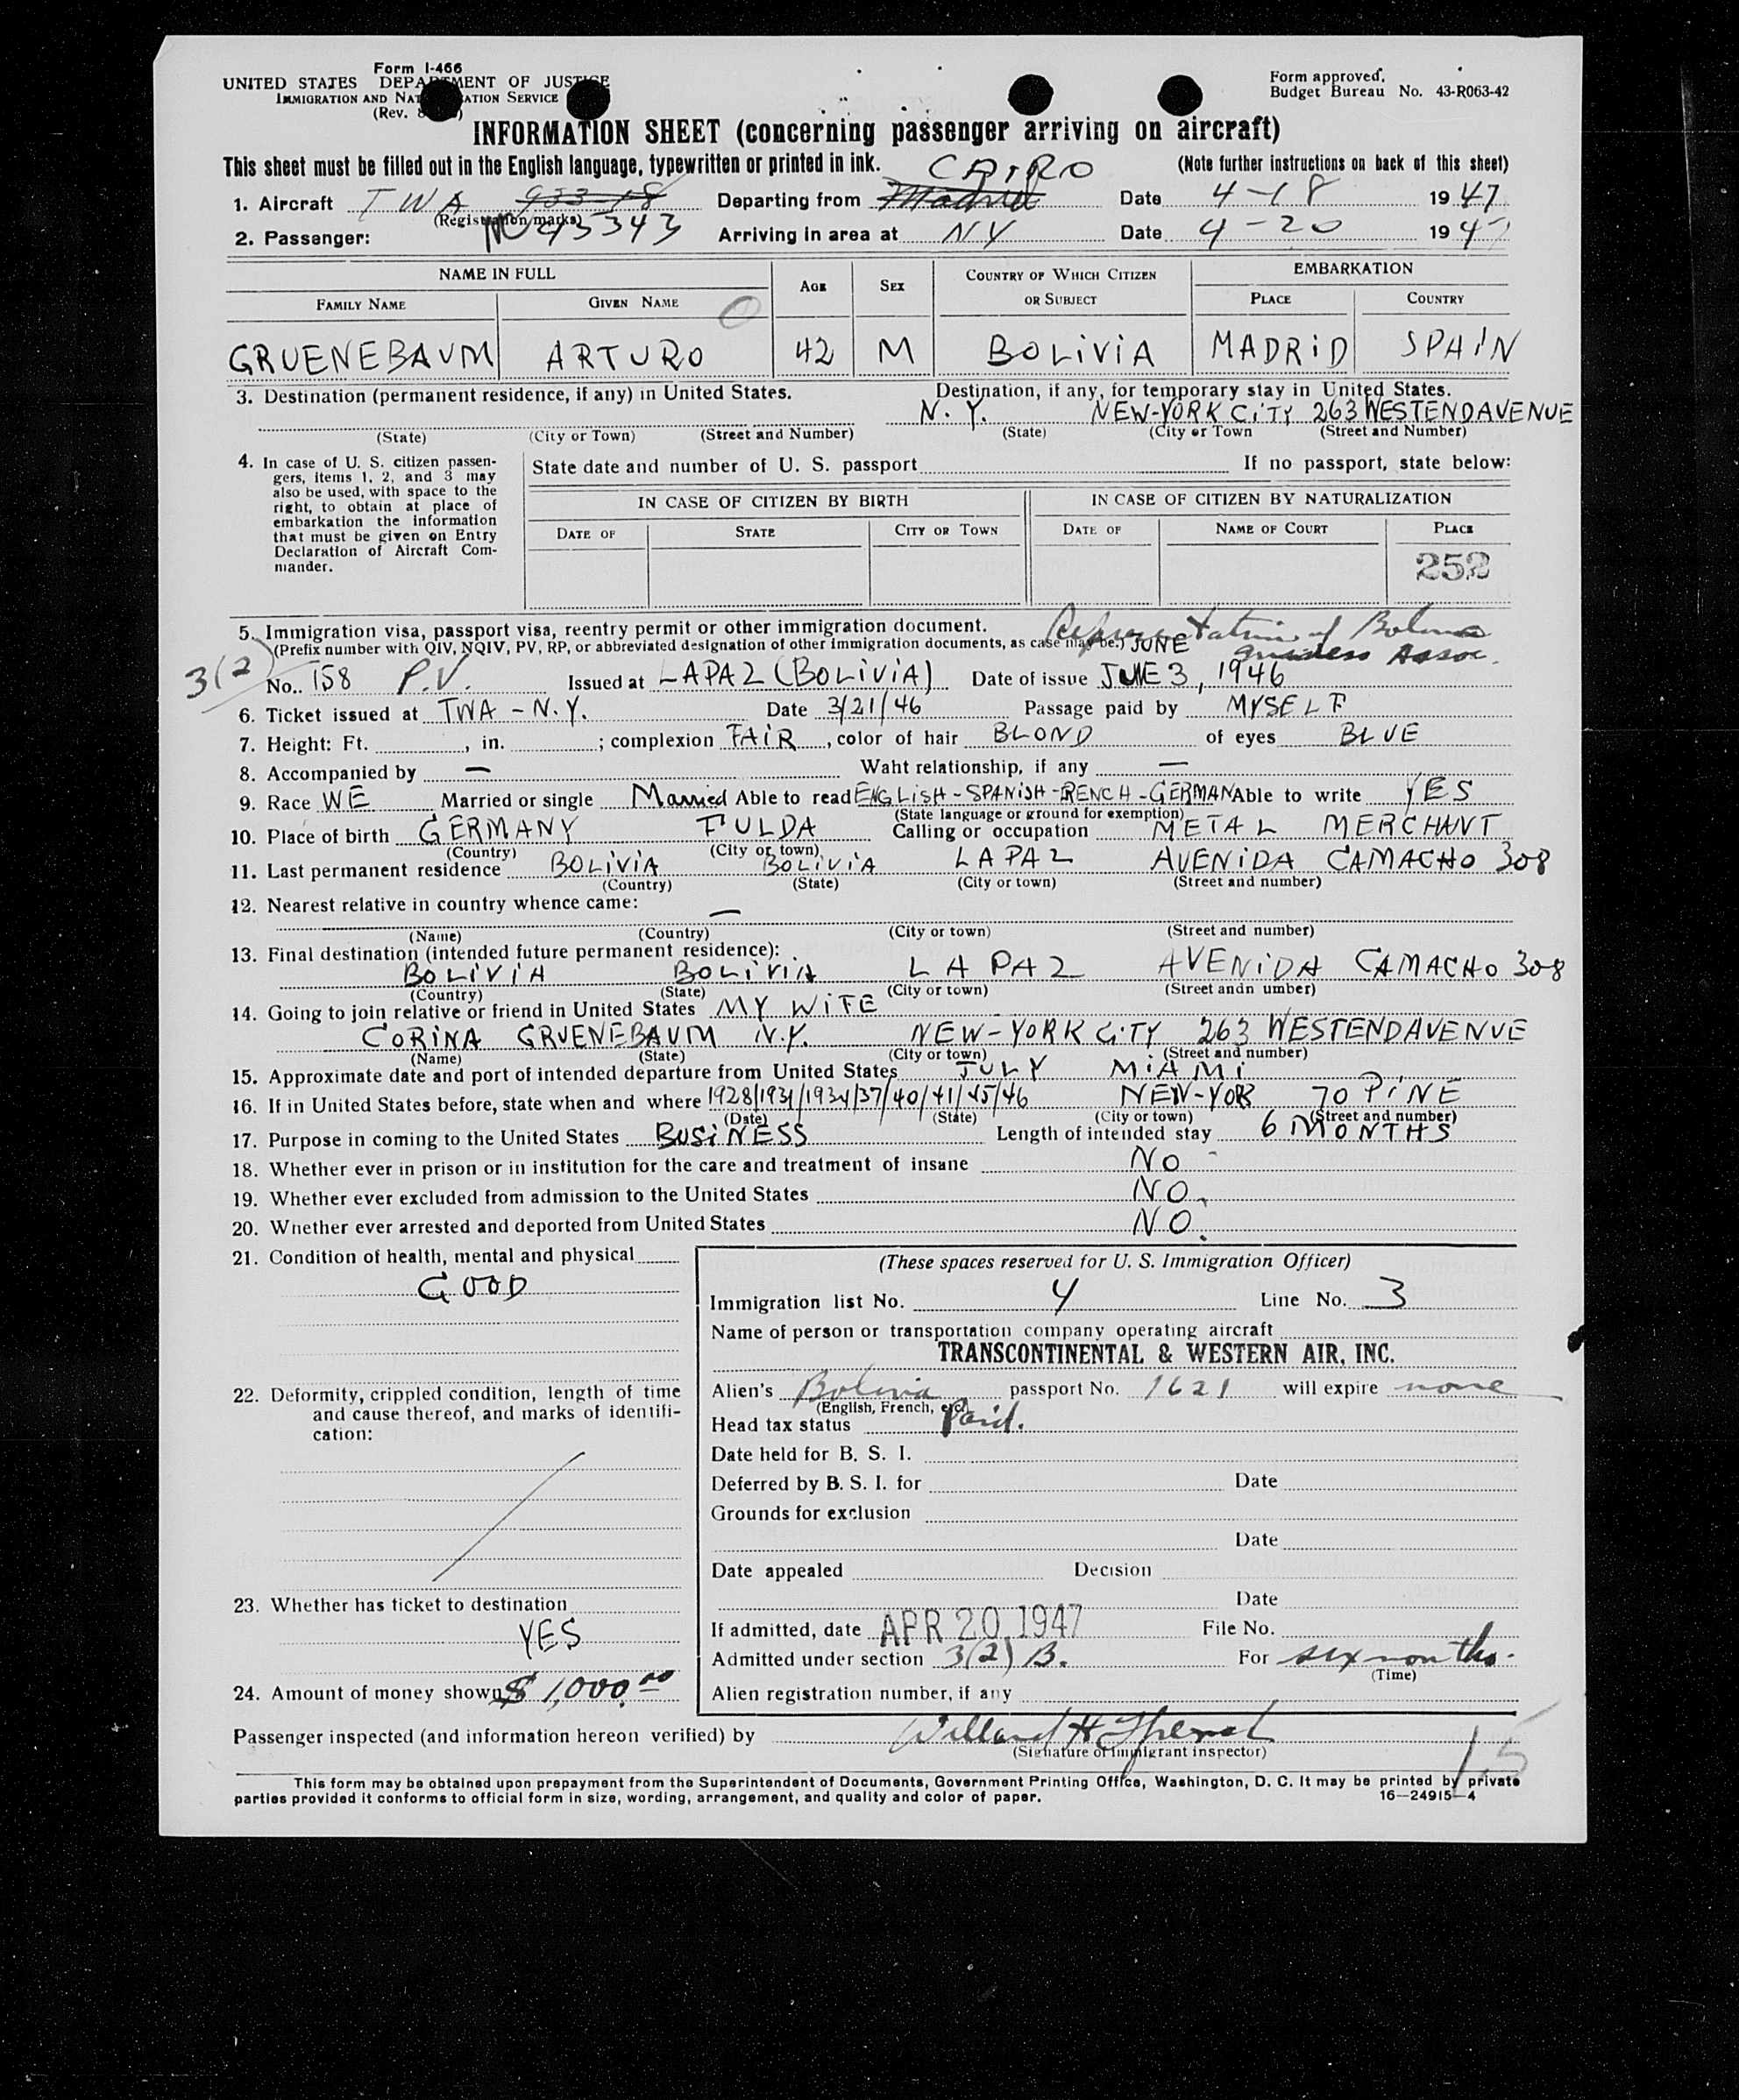 Form I-466
UNITED STATES DEPARTMENT OF JUSTICE
IMMIGRATION AND NATURALIZATION SERVICE
(Rev.
Form approved.
Budget Bureau No. 43-R063-42
INFORMATION SHEET (concerning passenger arriving on aircraft)
This sheet must be filled out in the English language, typewritten or printed in ink. (Note further instructions on back of this sheet)
CAIRO
1. Aircraft TWA 933-18 Departing from Madrid Date 4-18 1947
(Registration marks)
2. Passenger: NC 45343 Arriving in area at NY Date 4-20 1947
NAME IN FULL AGE SEX COUNTRY OF WHICH CITIZEN OR SUBJECT EMBARKATION
FAMILY NAME GIVEN NAME PLACE COUNTRY
GRUENEBAUM ARTURO 42 M BOLIVIA MADRID SPAIN
3. Destination (permanent residence, if any) in United States. Destination, if any, for temporary stay in United States.
N.Y. NEW-YORK CITY 263 WESTENDAVENUE
(State) (City or Town) (Street and Number) (State) (City or Town (Street and Number)
4. In case of U. S. citizen passen-
gers, items 1, 2, and 3 may
also be used, with space to the
right, to obtain at place of
embarkation the information
that must be given on Entry
Declaration of Aircraft Com-
mander.
State date and number of U. S. passport If no passport, state below:
IN CASE OF CITIZEN BY BIRTH IN CASE OF CITIZEN BY NATURALIZATION
DATE OF STATE CITY OR TOWN DATE OF NAME OF COURT PLACE
252
5. Immigration visa, passport visa, reentry permit or other immigration document.
(Prefix number with QIV, NQIV, PV, RP, or abbreviated designation of other immigration documents, as case may be.) JUNE
3(2)
No. 158 P.V. Issued at LAPAZ (BOLIVIA) Date of issue JUNE 3, 1946
6. Ticket issued at TWA - N.Y. Date 3/21/46 Passage paid by MYSELF
7. Height: Ft. , in. ; complexion FAIR , color of hair BLOND of eyes BLUE
8. Accompanied by — Waht relationship, if any —
9. Race WE Married or single Married Able to read ENGLISH-SPANISH-FRENCH-GERMAN Able to write YES
(State language or ground for exemption)
10. Place of birth GERMANY FULDA Calling or occupation METAL MERCHANT
(Country) (City or town)
11. Last permanent residence BOLIVIA BOLIVIA LAPAZ AVENIDA CAMACHO 308
(Country) (State) (City or town) (Street and number)
12. Nearest relative in country whence came: —
(Name) (Country) (City or town) (Street and number)
13. Final destination (intended future permanent residence):
BOLIVIA BOLIVIA LA PAZ AVENIDA CAMACHO 308
(Country) (State) (City or town) (Street andn umber)
14. Going to join relative or friend in United States MY WIFE
CORINA GRUENEBAUM N.Y. NEW-YORK CITY 263 WESTENDAVENUE
(Name) (State) (City or town) (Street and number)
15. Approximate date and port of intended departure from United States JULY MIAMI
16. If in United States before, state when and where 1928/1931/1934/37/40/41/45/46 NEW-YORK 70 PINE
(Date) (State) (City or town) (Street and number)
17. Purpose in coming to the United States BUSINESS Length of intended stay 6 MONTHS
18. Whether ever in prison or in institution for the care and treatment of insane NO
19. Whether ever excluded from admission to the United States NO.
20. Whether ever arrested and deported from United States NO.
21. Condition of health, mental and physical
GOOD
22. Deformity, crippled condition, length of time
and cause thereof, and marks of identifi-
cation:
23. Whether has ticket to destination
YES
24. Amount of money shown $ 1,000.00
(These spaces reserved for U. S. Immigration Officer)
Immigration list No. 4 Line No. 3
Name of person or transportation company operating aircraft
TRANSCONTINENTAL & WESTERN AIR, INC.
Alien's Bolivia passport No. 1621 will expire none
(English, French, etc)
Head tax status Paid.
Date held for B. S. I.
Deferred by B. S. I. for Date
Grounds for exclusion
Date
Date appealed Decision
Date
If admitted, date APR 20 1947 File No.
Admitted under section 3(2) B. For six months.
(Time)
Alien registration number, if any
Passenger inspected (and information hereon verified) by Willard H
(Signature of immigrant inspector)
15
This form may be obtained upon prepayment from the Superintendent of Documents, Government Printing Office, Washington, D. C. It may be printed by private
parties provided it conforms to official form in size, wording, arrangement, and quality and color of paper. 16—24915-4